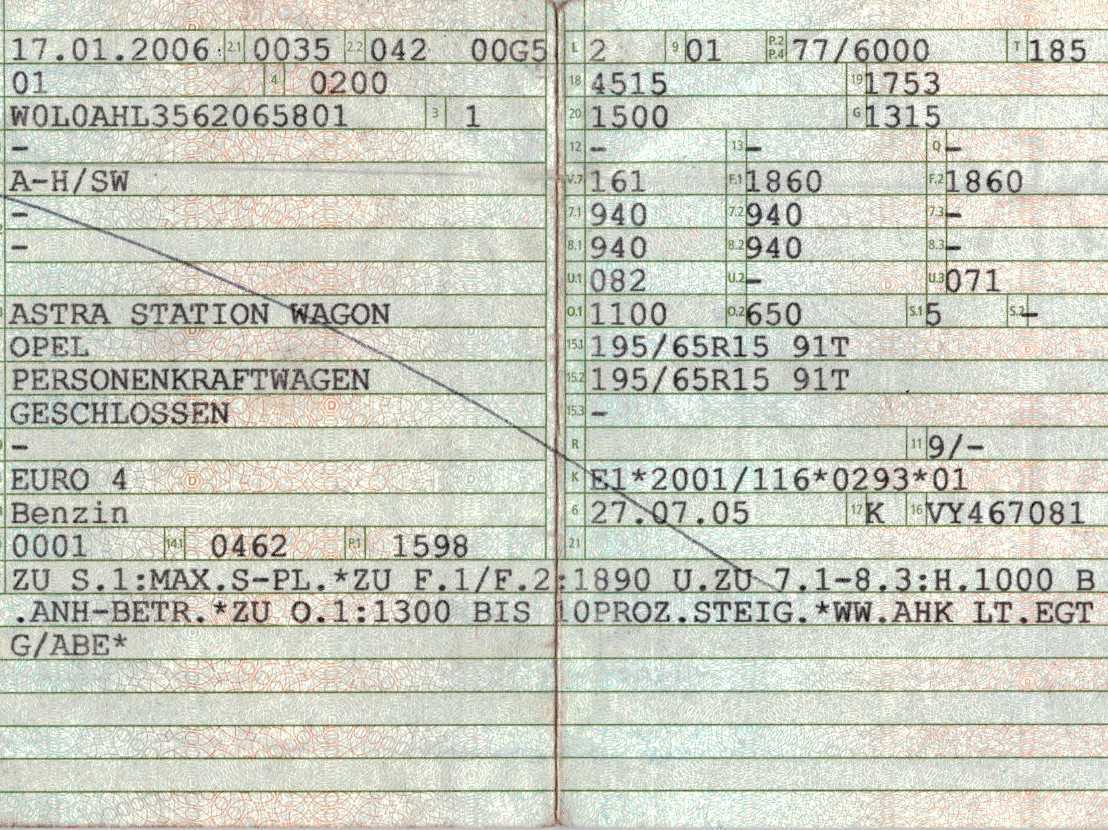 17.01.2006 2.1 0035 2.2 042 00G5 L 2 9 01 P.2 P.4 77/6000 T 185
01 4 0200 18 4515 19 1753
W0L0AHL3562065801 3 1 20 1500 G 1315
– 12 – 13 – Q –
A-H/SW V.7 161 F.1 1860 F.2 1860
– 7.1 940 7.2 940 7.3 –
– 8.1 940 8.2 940 8.3 –
U.1 082 U.2 – U.3 071
ASTRA STATION WAGON O.1 1100 O.2 650 S.1 5 S.2 –
OPEL 15.1 195/65R15 91T
PERSONENKRAFTWAGEN 15.2 195/65R15 91T
GESCHLOSSEN 15.3 –
– R 11 9/–
EURO 4 K E1*2001/116*0293*01
Benzin 6 27.07.05 17 K 16 VY467081
0001 14.1 0462 P.1 1598 21
ZU S.1:MAX.S-PL.*ZU F.1/F.2:1890 U.ZU 7.1-8.3:H.1000 B
.ANH-BETR.*ZU O.1:1300 BIS 10PROZ.STEIG.*WW.AHK LT.EGT
G/ABE*